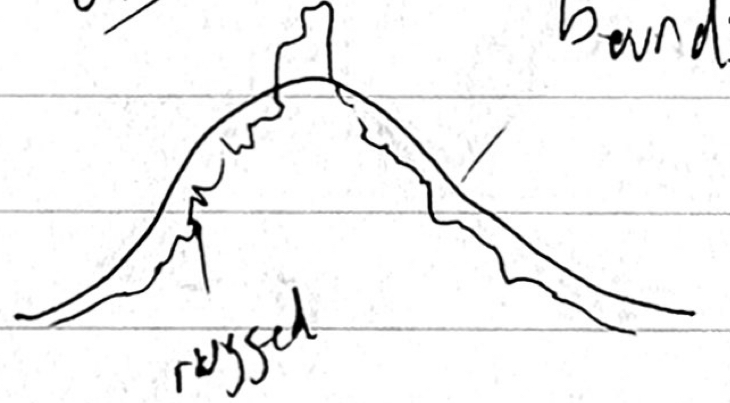 bound
rugged